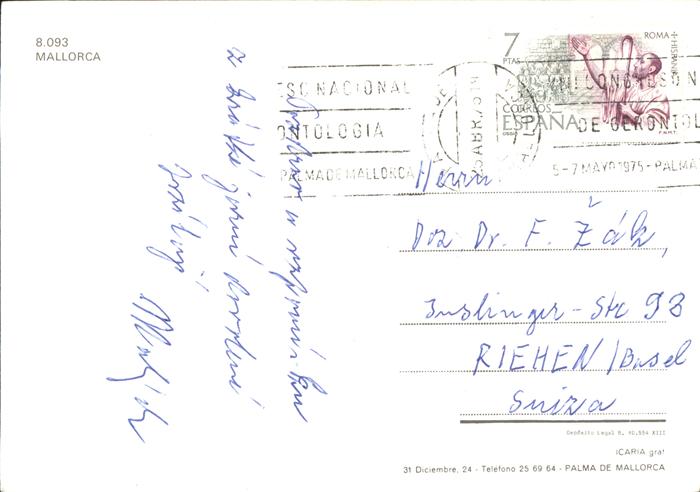 8.093
MALLORCA
7
PTAS
ROMA + HISPANIA
CORREOS
ESPAÑA
F.N.M.T.
SO NACIONAL
ONTOLOGIA
PALMA DE MALLORCA
ABR. 75
CONGRESO N
DE GERONTOL
5-7 MAYO 1975 - PALMA
Pozdrav
z krátké jarní dovolené
Herrn
Doz Dr. F. Žák,
Inslinger-Str 93
RIEHEN / Basel
Suiza
Depósito Legal B. 40.554 XIII
ICARIA graf
31 Diciembre, 24 - Teléfono 25 69 64 - PALMA DE MALLORCA